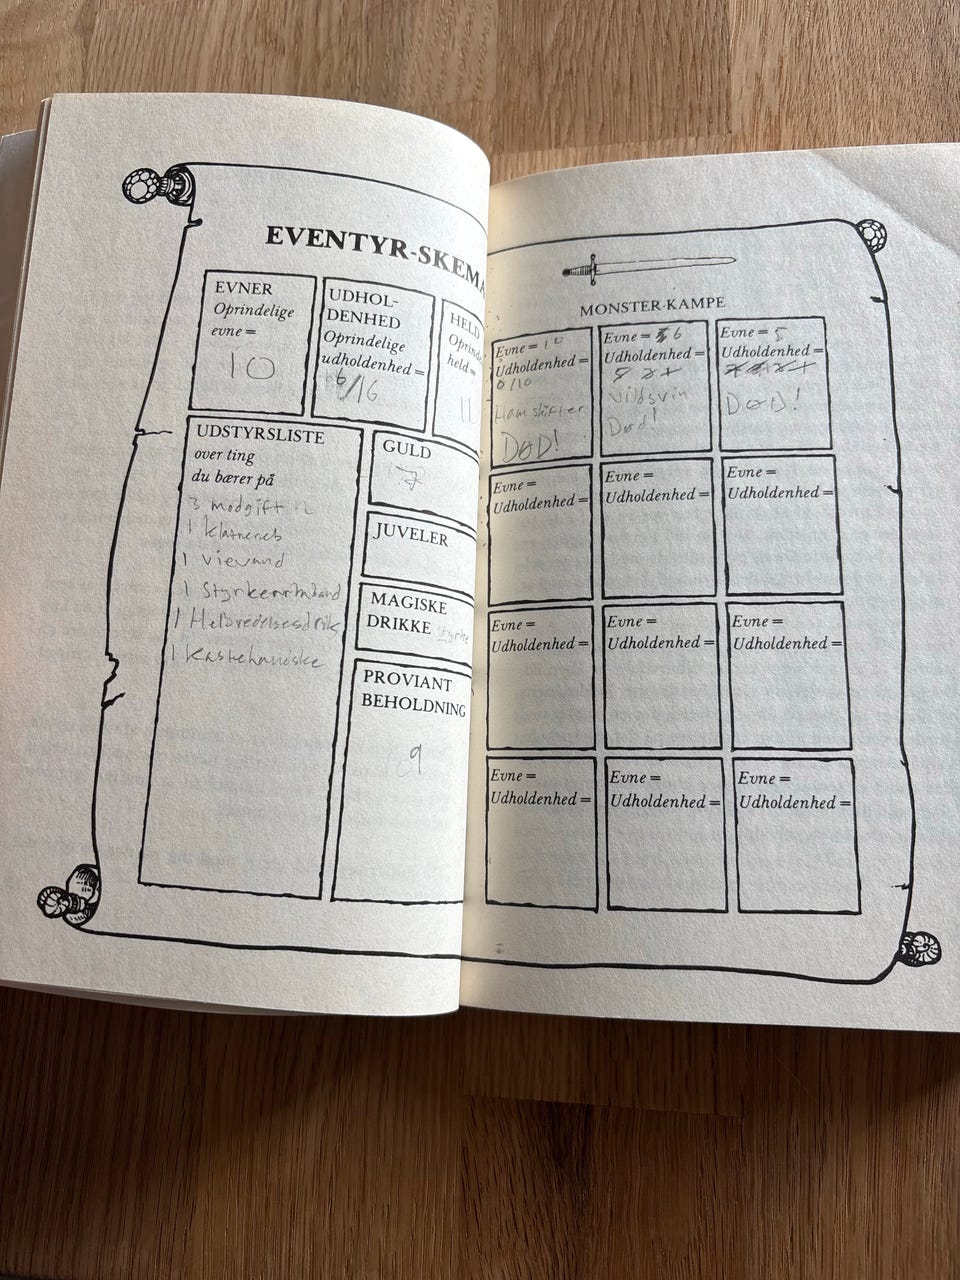 EVENTYR-SKEMA
EVNER
Oprindelige
evne =
10
UDHOL-
DENHED
Oprindelige
udholdenhed =
6/16
HELD
Oprind
held =
11
UDSTYRSLISTE
over ting
du bærer på
3 modgift
1
1 vievand
1 Styrkearmbånd
1 Helbredelsesdrik
1 Kastehandske
GULD
JUVELER
MAGISKE
DRIKKE Styrke
PROVIANT
BEHOLDNING
9
MONSTER-KAMPE
Evne = 10
Udholdenhed =
0/10
Hamskifter
DØD!
Evne = 6
Udholdenhed =
Vildsvin
Død!
Evne = 5
Udholdenhed =
DØD!
Evne =
Udholdenhed =
Evne =
Udholdenhed =
Evne =
Udholdenhed =
Evne =
Udholdenhed =
Evne =
Udholdenhed =
Evne =
Udholdenhed =
Evne =
Udholdenhed =
Evne =
Udholdenhed =
Evne =
Udholdenhed =